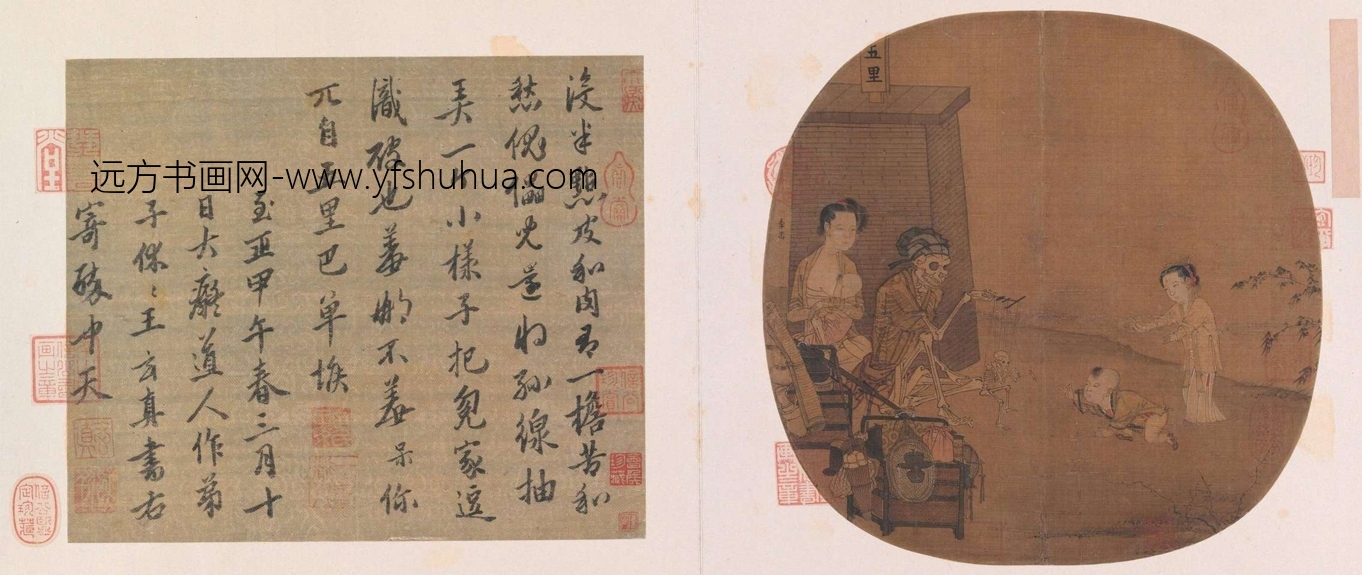 没半點皮和肉有一檐苦和
愁傀儡児還将絲線抽
弄一个小樣子把冤家逗
識破也羞那不羞呆你
兀自五里巴单堠
至正甲午春三月十
日大癡道人作弟
子休〻王玄真書右
寄醉中天
远方书画网-www.yfshuhua.com
五里
李嵩